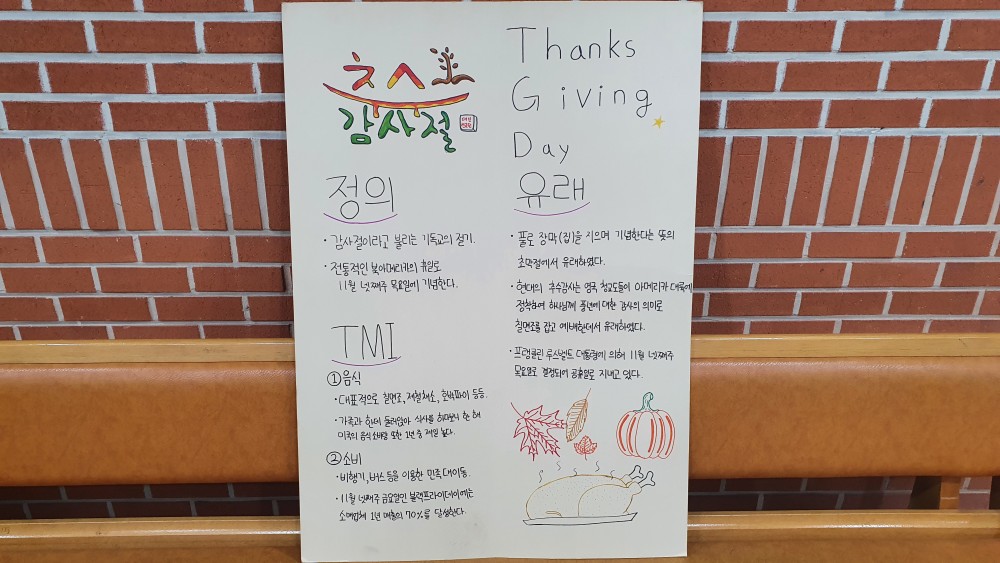 추수
감사절
정의
· 감사절이라고 불리는 기독교의 절기.
· 전통적인 북아메리카의 휴일로
11월 넷째주 목요일에 기념한다.
TMI
①음식
· 대표적으로 칠면조, 제철채소, 호박파이 등등.
· 가족과 한데 둘러앉아 식사를 하다보니 한 해
미국의 음식 소비량 또한 1년 중 제일 높다.
②소비
· 비행기, 버스 등을 이용한 민족대이동.
· 11월 넷째주 금요일인 블랙프라이데이에는
소매업체 1년 매출의 70%를 달성한다.
Thanks
Giving
Day
유래
· 풀로 장막(집)을 지으며 기념한다는 뜻의
초막절에서 유래하였다.
· 현대의 추수감사는 영국 청교도들이 아메리카 대륙에
정착하여 하나님께 풍년에 대한 감사의 의미로
칠면조를 잡고 예배한데서 유래하였다.
· 프랭클린 루스벨트 대통령에 의해 11월 넷째주
목요일로 결정되어 공휴일로 지내고 있다.